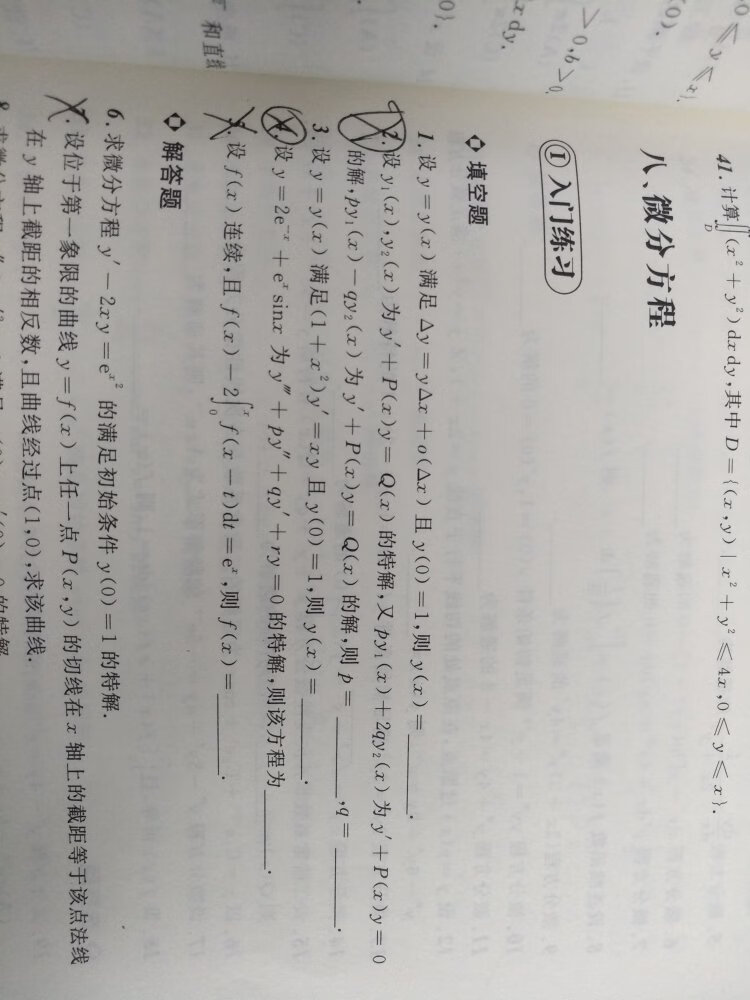 和直线
}.
x dy.
> 0, b > 0.
0).
0 ≤ y ≤ x}.
41. 计算∬_D (x² + y²) dx dy, 其中 D = {(x, y) | x² + y² ≤ 4x, 0 ≤ y ≤ x}.
八、微分方程
① 入门练习
填空题
1. 设 y = y(x) 满足 Δy = yΔx + o(Δx) 且 y(0) = 1, 则 y(x) = ______.
2. 设 y₁(x), y₂(x) 为 y′ + P(x)y = Q(x) 的特解, 又 py₁(x) + 2qy₂(x) 为 y′ + P(x)y = 0
的解, py₁(x) − qy₂(x) 为 y′ + P(x)y = Q(x) 的解, 则 p = ______, q = ______.
3. 设 y = y(x) 满足(1 + x²)y′ = xy 且 y(0) = 1, 则 y(x) = ______.
4. 设 y = 2e⁻ˣ + eˣ sinx 为 y‴ + py″ + qy′ + ry = 0 的特解, 则该方程为 ______.
5. 设 f(x) 连续, 且 f(x) − 2∫₀ˣ f(x − t)dt = eˣ, 则 f(x) = ______.
解答题
6. 求微分方程 y′ − 2xy = e^{x²} 的满足初始条件 y(0) = 1 的特解.
7. 设位于第一象限的曲线 y = f(x) 上任一点 P(x, y) 的切线在 x 轴上的截距等于该点法线
在 y 轴上截距的相反数, 且曲线经过点(1, 0), 求该曲线.
8. 求微分方程
的特解